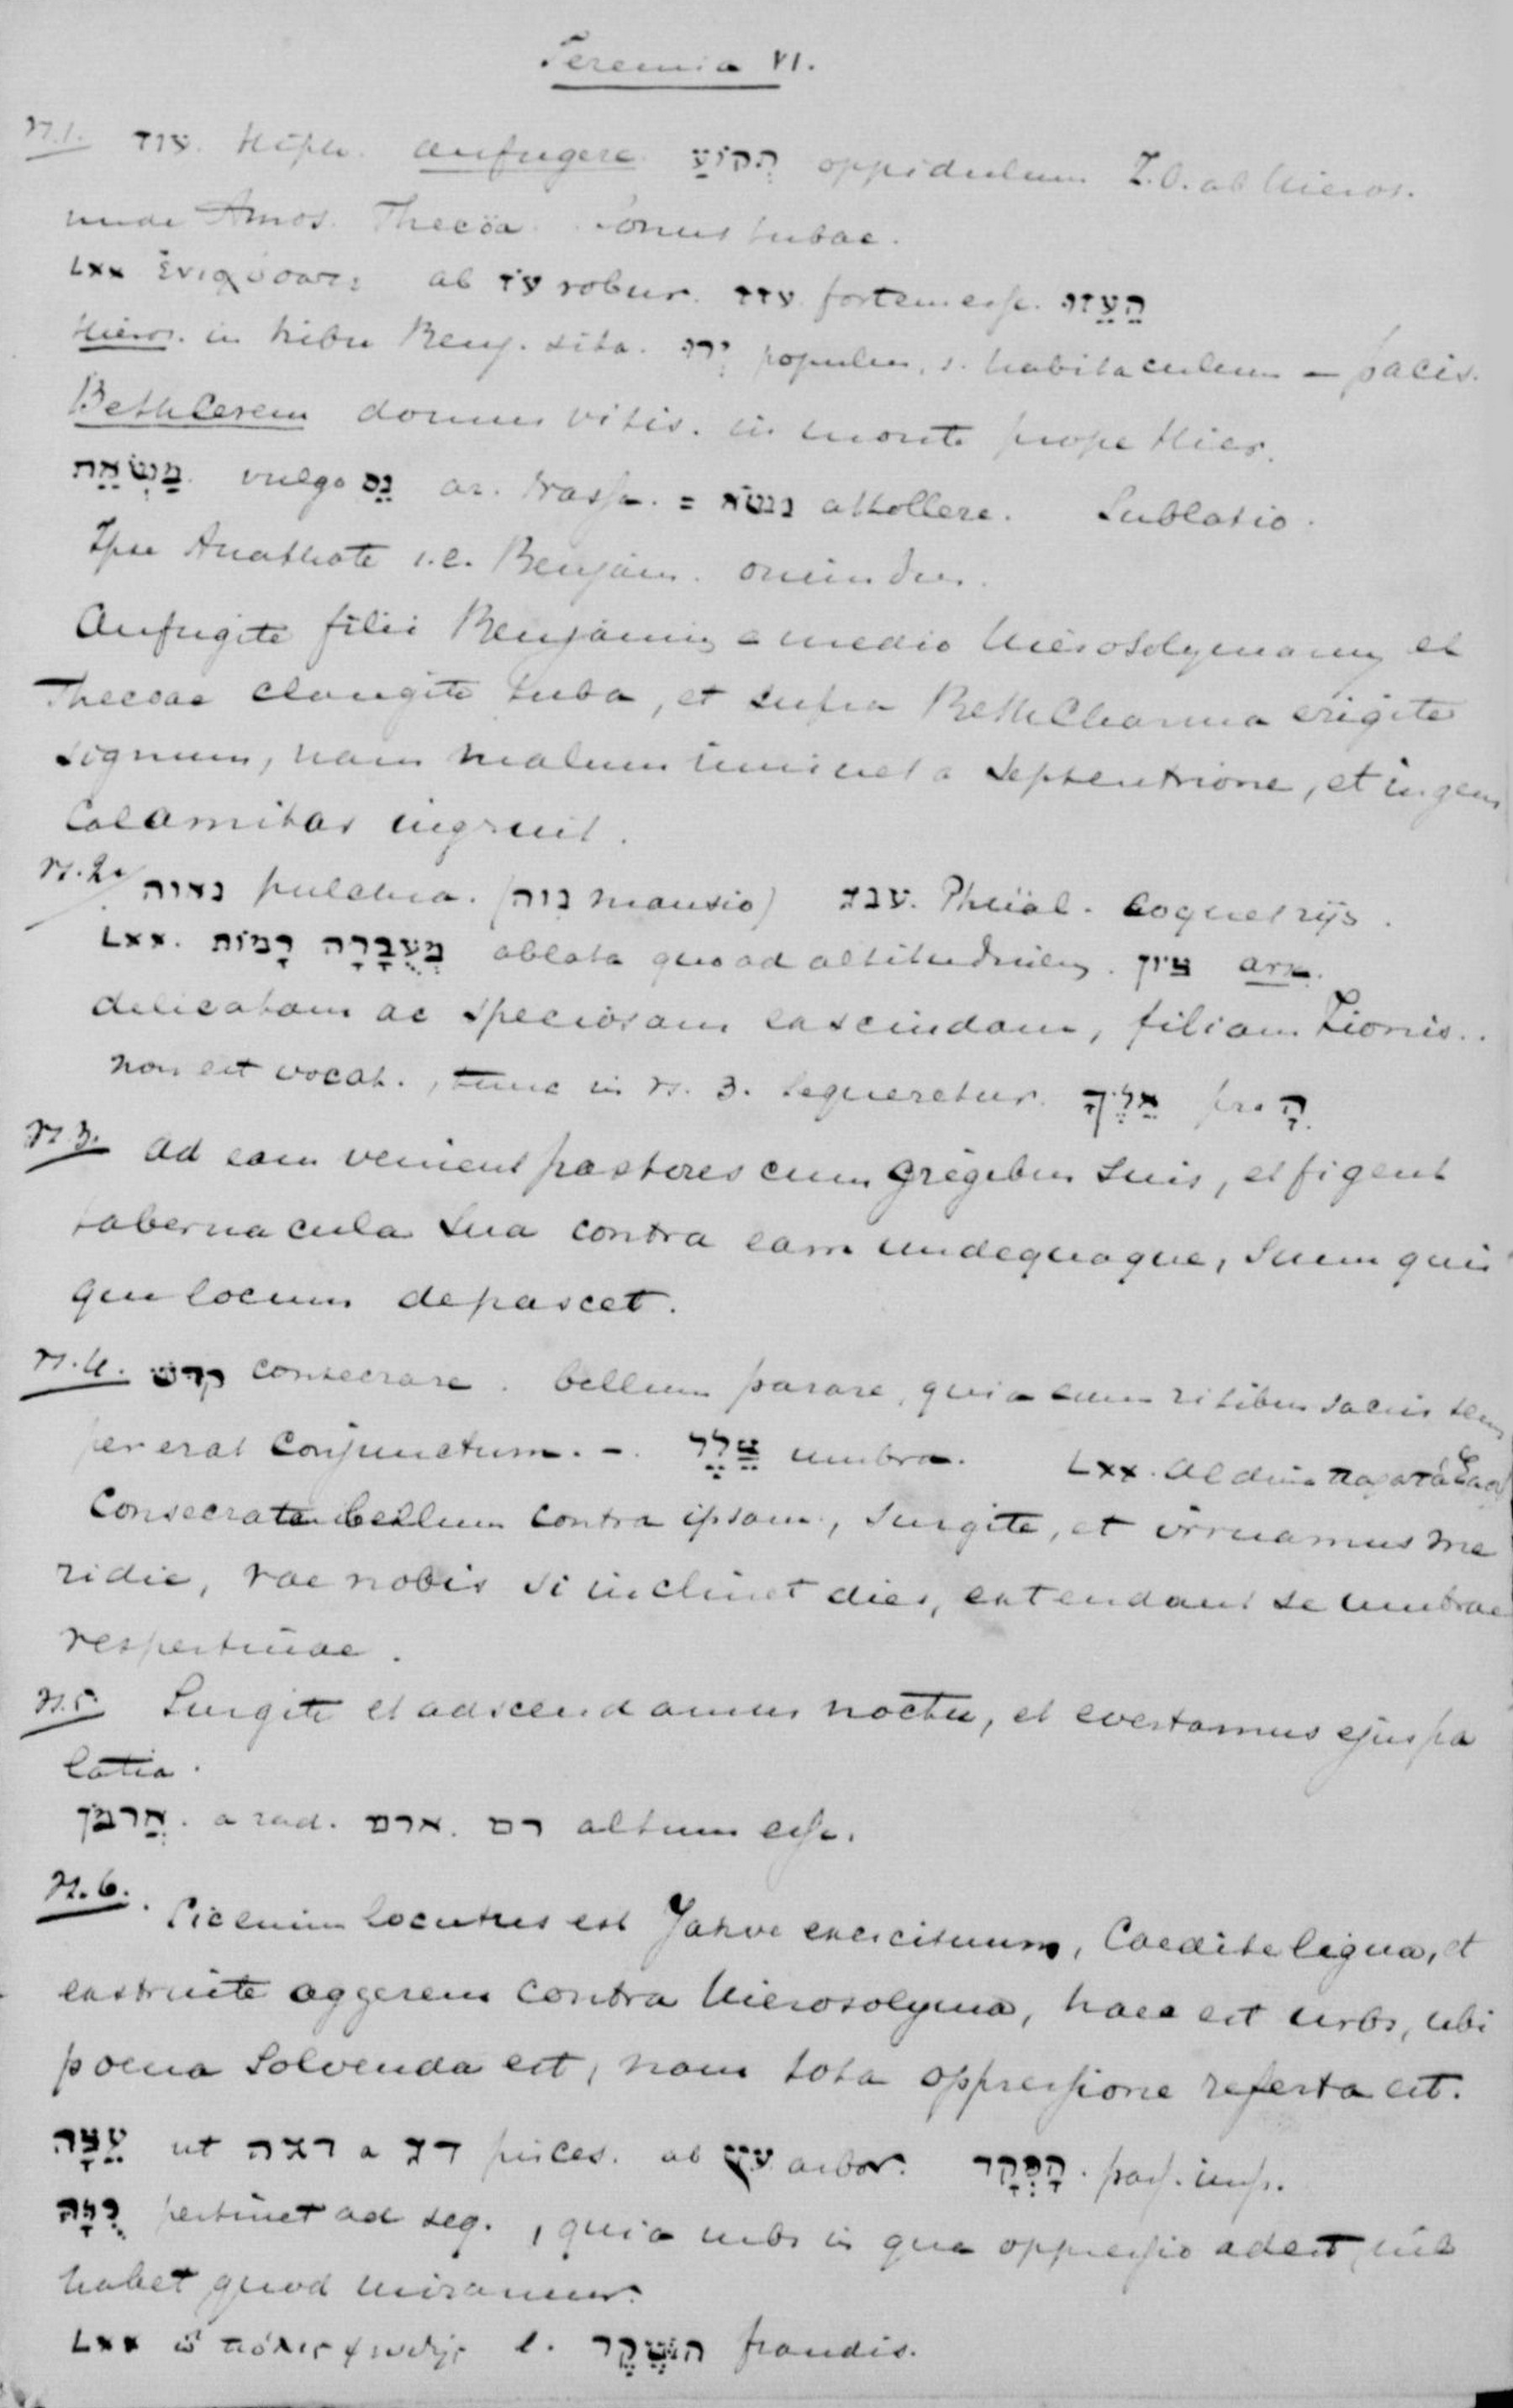 Jeremia VI.
vs.1. עוז. Hiph. aufugere תקוע oppidulum Z.O. ab Hieros.
unde Amos. Thecöa. sonus tubae.
LXX ab עז robur. עזז fortem esse. הָעֵזוּ
Hieros. in tribu Benj. sita. ירו populus, s. habitaculum – pacis.
Bethcerem domus vitis. in monte prope Hier.
מַשְׂאֵת. vulgo נֵס ar. = נשׂא attollere. Sublatio.
Ipse Anathote i.e. Benjam. oriundus.
Aufugite filii Benjamin e medio Hierosolymarum et
Thecoae clangite tuba, et supra BethCharma erigite
signum, nam malum imminet a septentrione, et ingens
calamitas ingruit.
vs.2. נאוה pulchra. (נוה mansio) ענג. Phüal. coquetrijs.
LXX. מְעֻבָרָה רָמוֹת ablata quoad altitudinem. ציון arx.
delicatam ac speciosam exscindam, filiam Zionis..
non est vocat., tunc in vs. 3. sequeretur אֵלֶיךָ pro הָ.
vs.3. Ad eam venient pastores cum gregibus suis, et figent
tabernacula sua contra eam undequaque, suum quis
que locum depascet.
vs.4. קדשׁ consecrare. bellum parare, quia cum ritibus sacris sem
per erat conjunctum. –. צֵלֶל umbra. LXX. Aldina
Consecrate bellum contra ipsam, surgite, et irruamus me
ridie, vae nobis si inclinet dies, extendant se umbrae
vespertinae.
vs.5. Surgite et adscendamus noctu, et evertamus ejus pa
latia.
אַרְמֹן. a rad. ארם. רם altum esse.
vs.6. Sic enim locutus est Jahve exercituum, Caedite ligna, et
exstruite aggerem contra Hierosolyma, haec est urbs, ubi
poena solvenda est, nam tota oppressione referta est.
עֵצָה ut דגה a דג pisces. ab עץ arbor. הָפְקָד. pass. imp.
כֻּלָּהּ pertinet ad seq., quia urbs in qua oppressio adest, nil
habet quod miramur.
LXX ὦ πόλις ψευδής l. השֶׁקֶר fraudis.